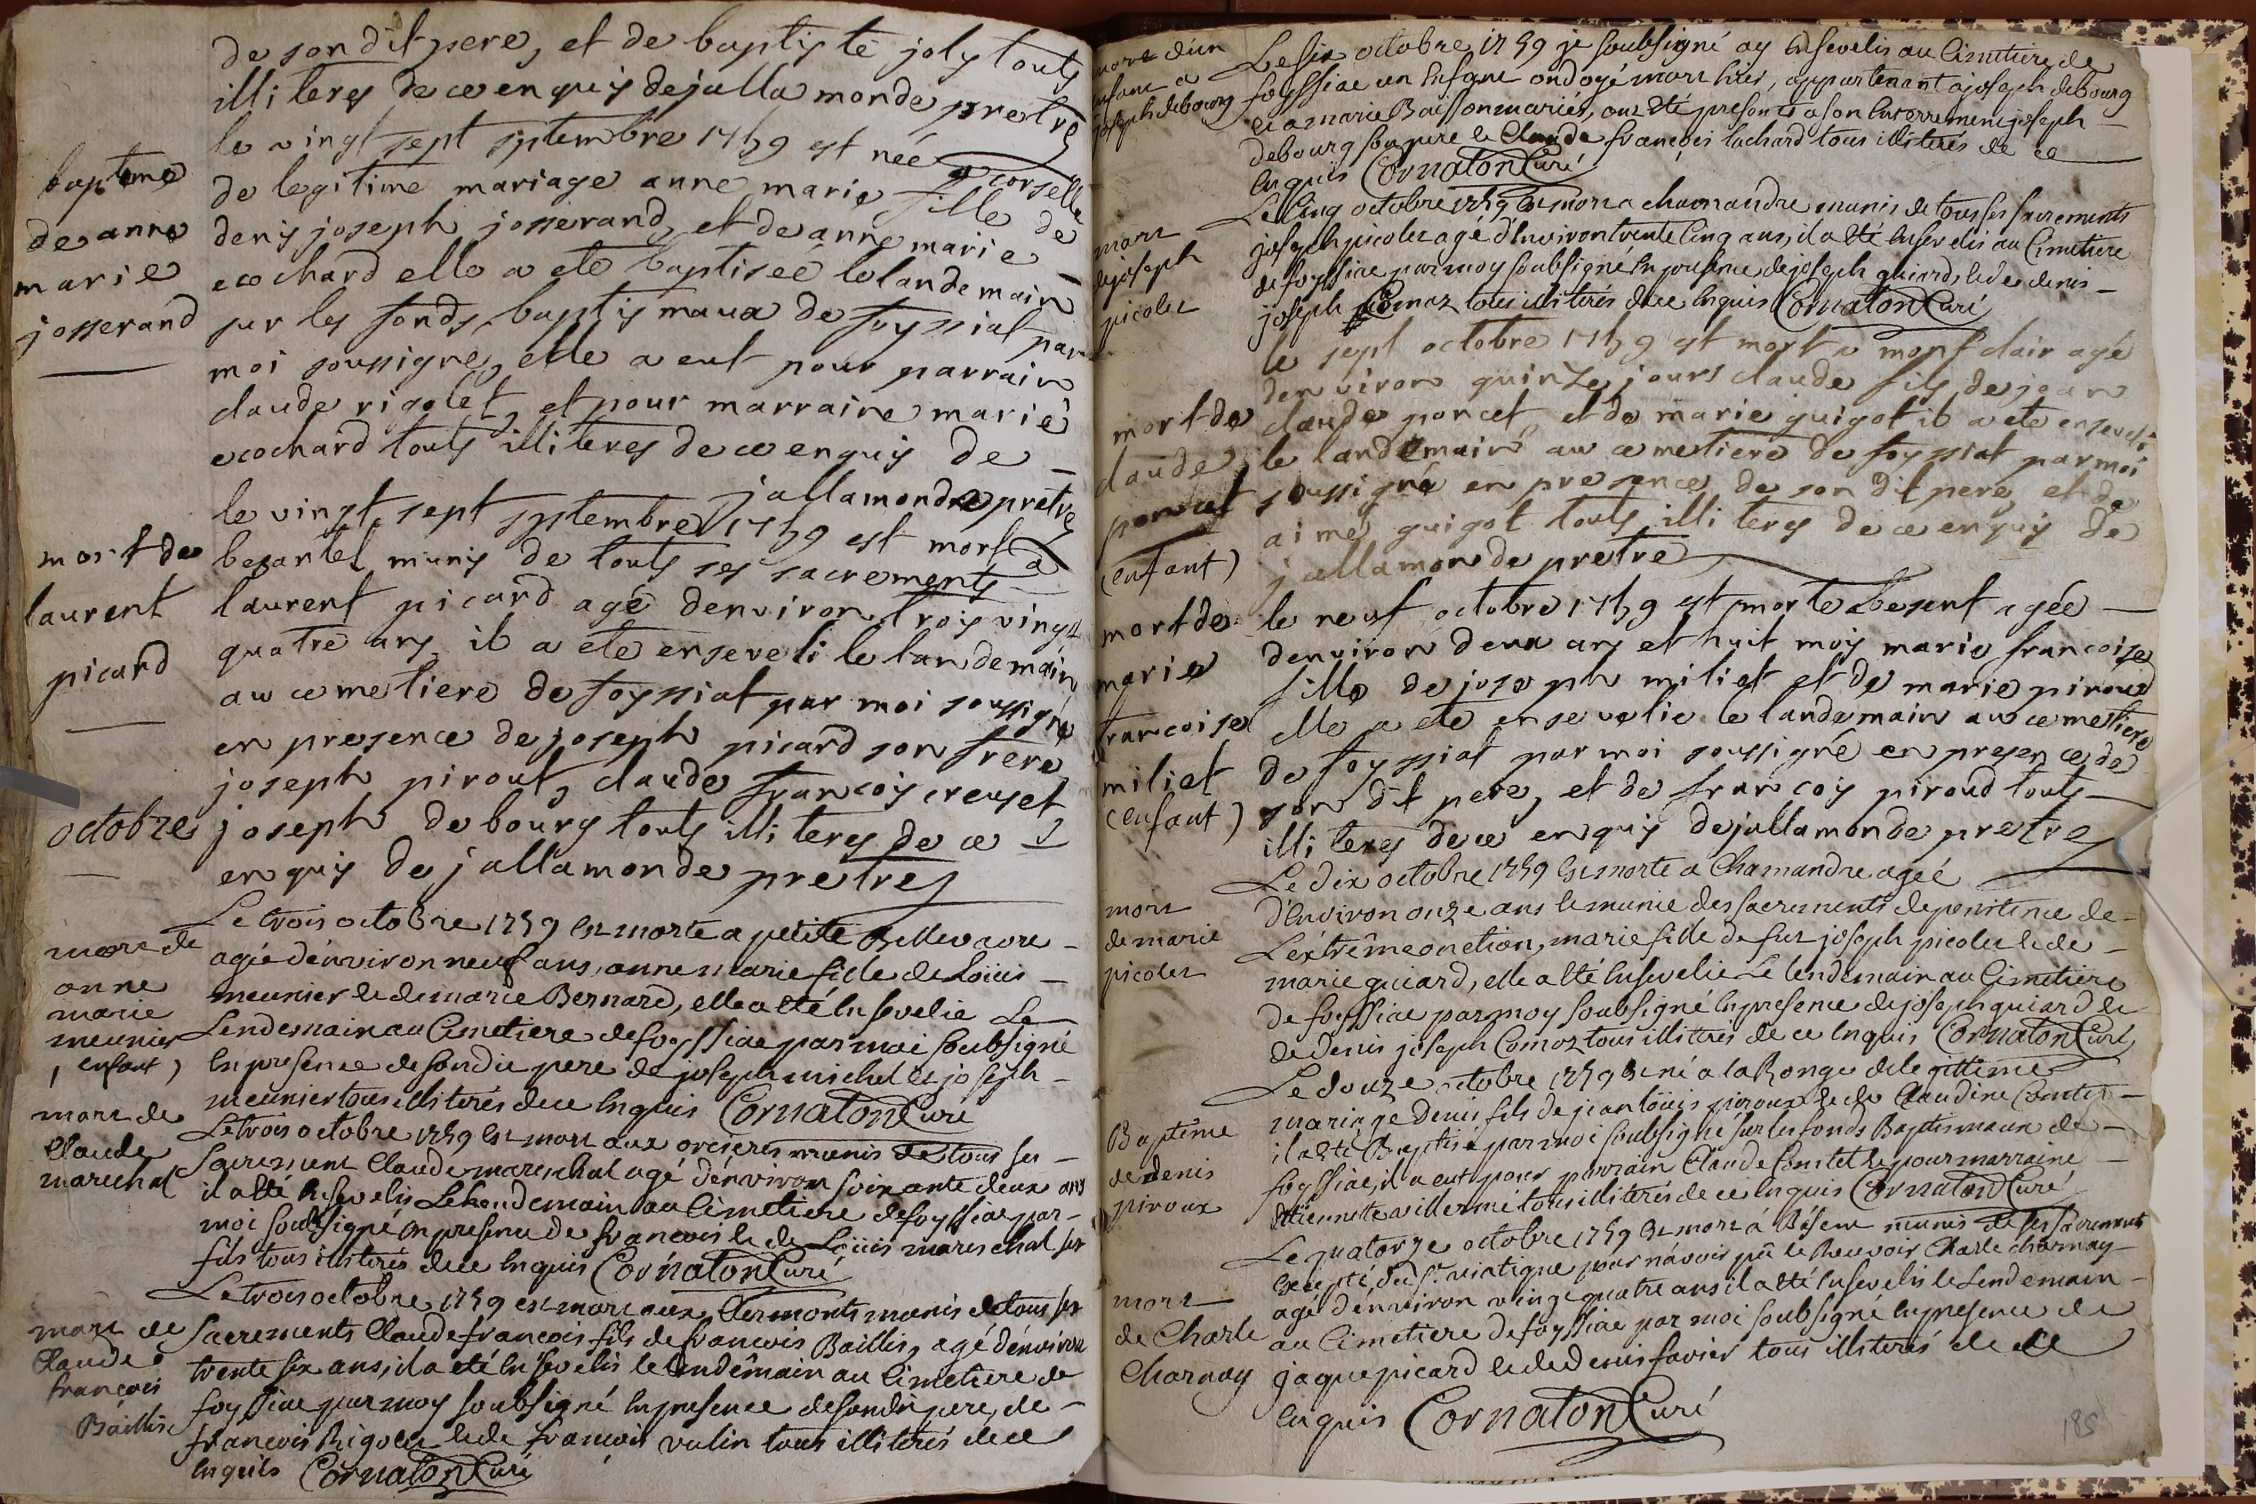 de son dit pere, et de baptiste joly touts
illiteres de ce enquis dejallamonde pretre
bapteme
de anne
marie
josserand
le vingt sept septembre 1759 est née a corselle
de legitime mariage anne marie fille de
denis joseph josserand, et de anne marie
ecochard elle a eté baptisée le landemain
sur les fonds baptismaux de foyssiat par
moi soussigné, elle a eut pour parrain
claude rigolet, et pour marraine marie
ecochard touts illiteres de ce enquis de
jallamonde pretre
mort de
laurent
picard
le vingt sept septembre 1759 est mort a
besantel munis de touts ses sacrements
laurent picard agé denviron trois vingt
quatre ans il a eté enseveli le landemain
au cemetiere de foyssiat par moi soussigné
en presence de joseph picard son frere,
joseph pirout, claude francois creuset
joseph debourg touts illiteres de ce
enquis de jallamonde pretre
octobre
mort de
anne
marie
meunier
(enfant)
Le trois octobre 1759 est morte a petite Bellevavre
agée d'environ neuf ans, anne marie fille de Loüis
meunier et de marie Bernard, elle a été ensevelie Le
Lendemain au Cimetiere de foyssiat par moi soubsigné
En presence de son dit pere de joseph michel et joseph
meunier tous illiterés de ce Enquis Cornaton Curé
mort de
Claude
marechal
Le trois octobre 1759 est mort aux orcieres munis de tous ses
Sacrement Claude mareschal agé d'environ soixante deux ans
il a été Ensevelis Lehendemain au Cimetiere de foyssiat par
moi soubsigné en presence de francois et de Loüis mareschal ses
fils tous illiterés de ce Enquis Cornaton Curé
mort de
Claude
françois
Baillis
Le trois octobre 1759 est mort aux Clermonts munis de tous ses
Sacrements Claude françois fils de francois Baillis, agé d'environ
trente six ans, il a été Ensevelis le Lendemain au Cimetiere de
foyssiat par moy soubsigné En presence de son dit pere, de
francois Rigolet et de francois vulin tous illiterés de ce
Enquis Cornaton Curé
mort d'un
enfant a
joseph debourg
Le six octobre 1759 je soubsigné ay Ensevelis au Cimetiere de
foyssiat un Enfant ondoyé mort hier, appartenant a joseph debourg
et a marie Baisson mariés, ont été presents a son Enterrement joseph
debourg son pere et Claude françois Lachard tous illiterés de ce
Enquis Cornaton Curé
mort
de joseph
picolet
Le Cinq octobre 1759 est mort a chamandre munis de tous ses sacrements
joseph picolet agé d'Environ trente Cinq ans, il a été Ensevelis au Cimetiere
de foyssiat par moy soubsigné En presence de joseph guiard, et de denis
joseph Comoz tous illiterés de ce Enquis Cornaton Curé
mort de
claude
poncet
(enfant)
le sept octobre 1759 est mort a montclair agé
denviron quinze jours claude fils de jean
claude poncet, et de marie guigot il a eté enseveli
le landemain au cemetiere de foyssiat par moi
soussigné en presence de son dit pere, et de
aimé guigot touts illiteres de ce enquis de
jallamonde pretre
mort de
marie
francoise
miliet
(enfant)
le neuf octobre 1759 est morte a besent agée
denviron deux ans et huit mois marie francoise
fille de joseph miliet et de marie piroud
elle a eté ensevelie le landemain au cemetiere
de foyssiat par moi soussigné en presence de
son dit pere, et de francois piroud touts
illiteres de ce enquis dejallamonde pretre
mort
de marie
picolet
Le dix octobre 1759 est morte a Chamandre agée
d'Environ onze ans et munie des Sacrements de penitence de
L'extrême onction, marie fille de fut joseph picolet et de
marie guiard, elle a été Ensevelie Le lendemain au Cimetiere
de foyssiat par moy soubsigné En presence de joseph guiard et
de denis joseph Comoz tous illiterés de ce Enquis Cornaton Curé
Baptême
de denis
piroux
Le douze octobre 1759 est né a la Ronge de legittime
mariage denis fils de jean loüis piroux et de Claudine Comtet
il a été Baptisé par moi soubsigné sur les fonds Baptismaux de
foyssiat, il a eut pour parrain Claude Comtet et pour marraine
Etiennete villermé tous illiterés de ce Enquis Cornaton Curé
mort
de Charle
Charnay
Le quatorze octobre 1759 est mort a Bésent munis de ses sacrements
Excepté du St. viatique pour n'avoir pû le Recevoir Charle charnay
agé d'environ vingt quatre ans il a été Ensevelis le Lendemain
au Cimetiere de foyssiat par moi soubsigné En presence de
jaque picard et de denis favier tous illiterés de ce
Enquis Cornaton Curé
185